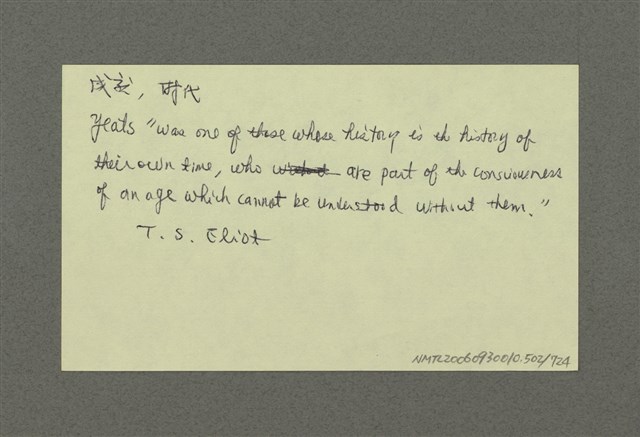 成就, 时代
Yeats "was one of those whose history is the history of
their own time, who are part of the consciousness
of an age which cannot be understood without them."
T. S. Eliot
NMTL20060930010.502/724